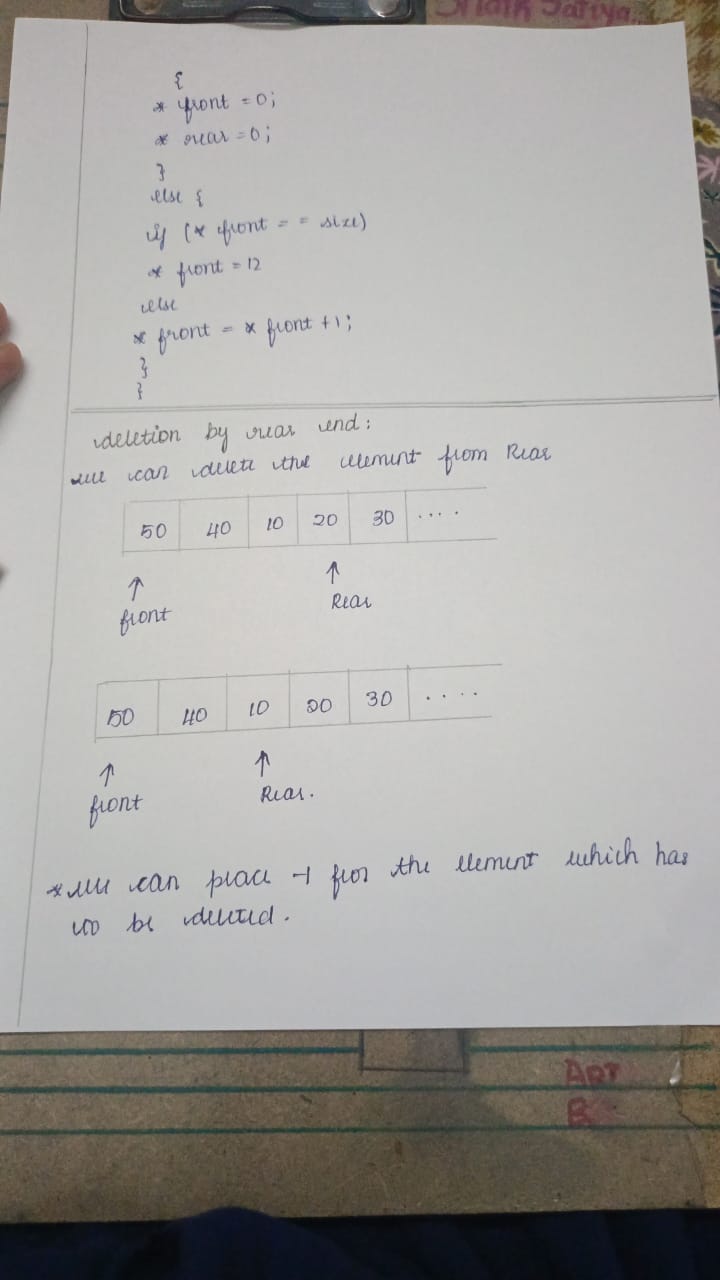 Shaik Safiya
{
* front = 0;
* rear = 0;
}
else {
if (* front = = size)
* front = 12
else
* front = * front + 1;
}
}
deletion by rear end:
we can delete the element from Rear
50 40 10 20 30 ....
↑ ↑
front Rear
50 40 10 20 30 ....
↑ ↑
front Rear.
* we can place -1 for the element which has
to be deleted.
ART
B